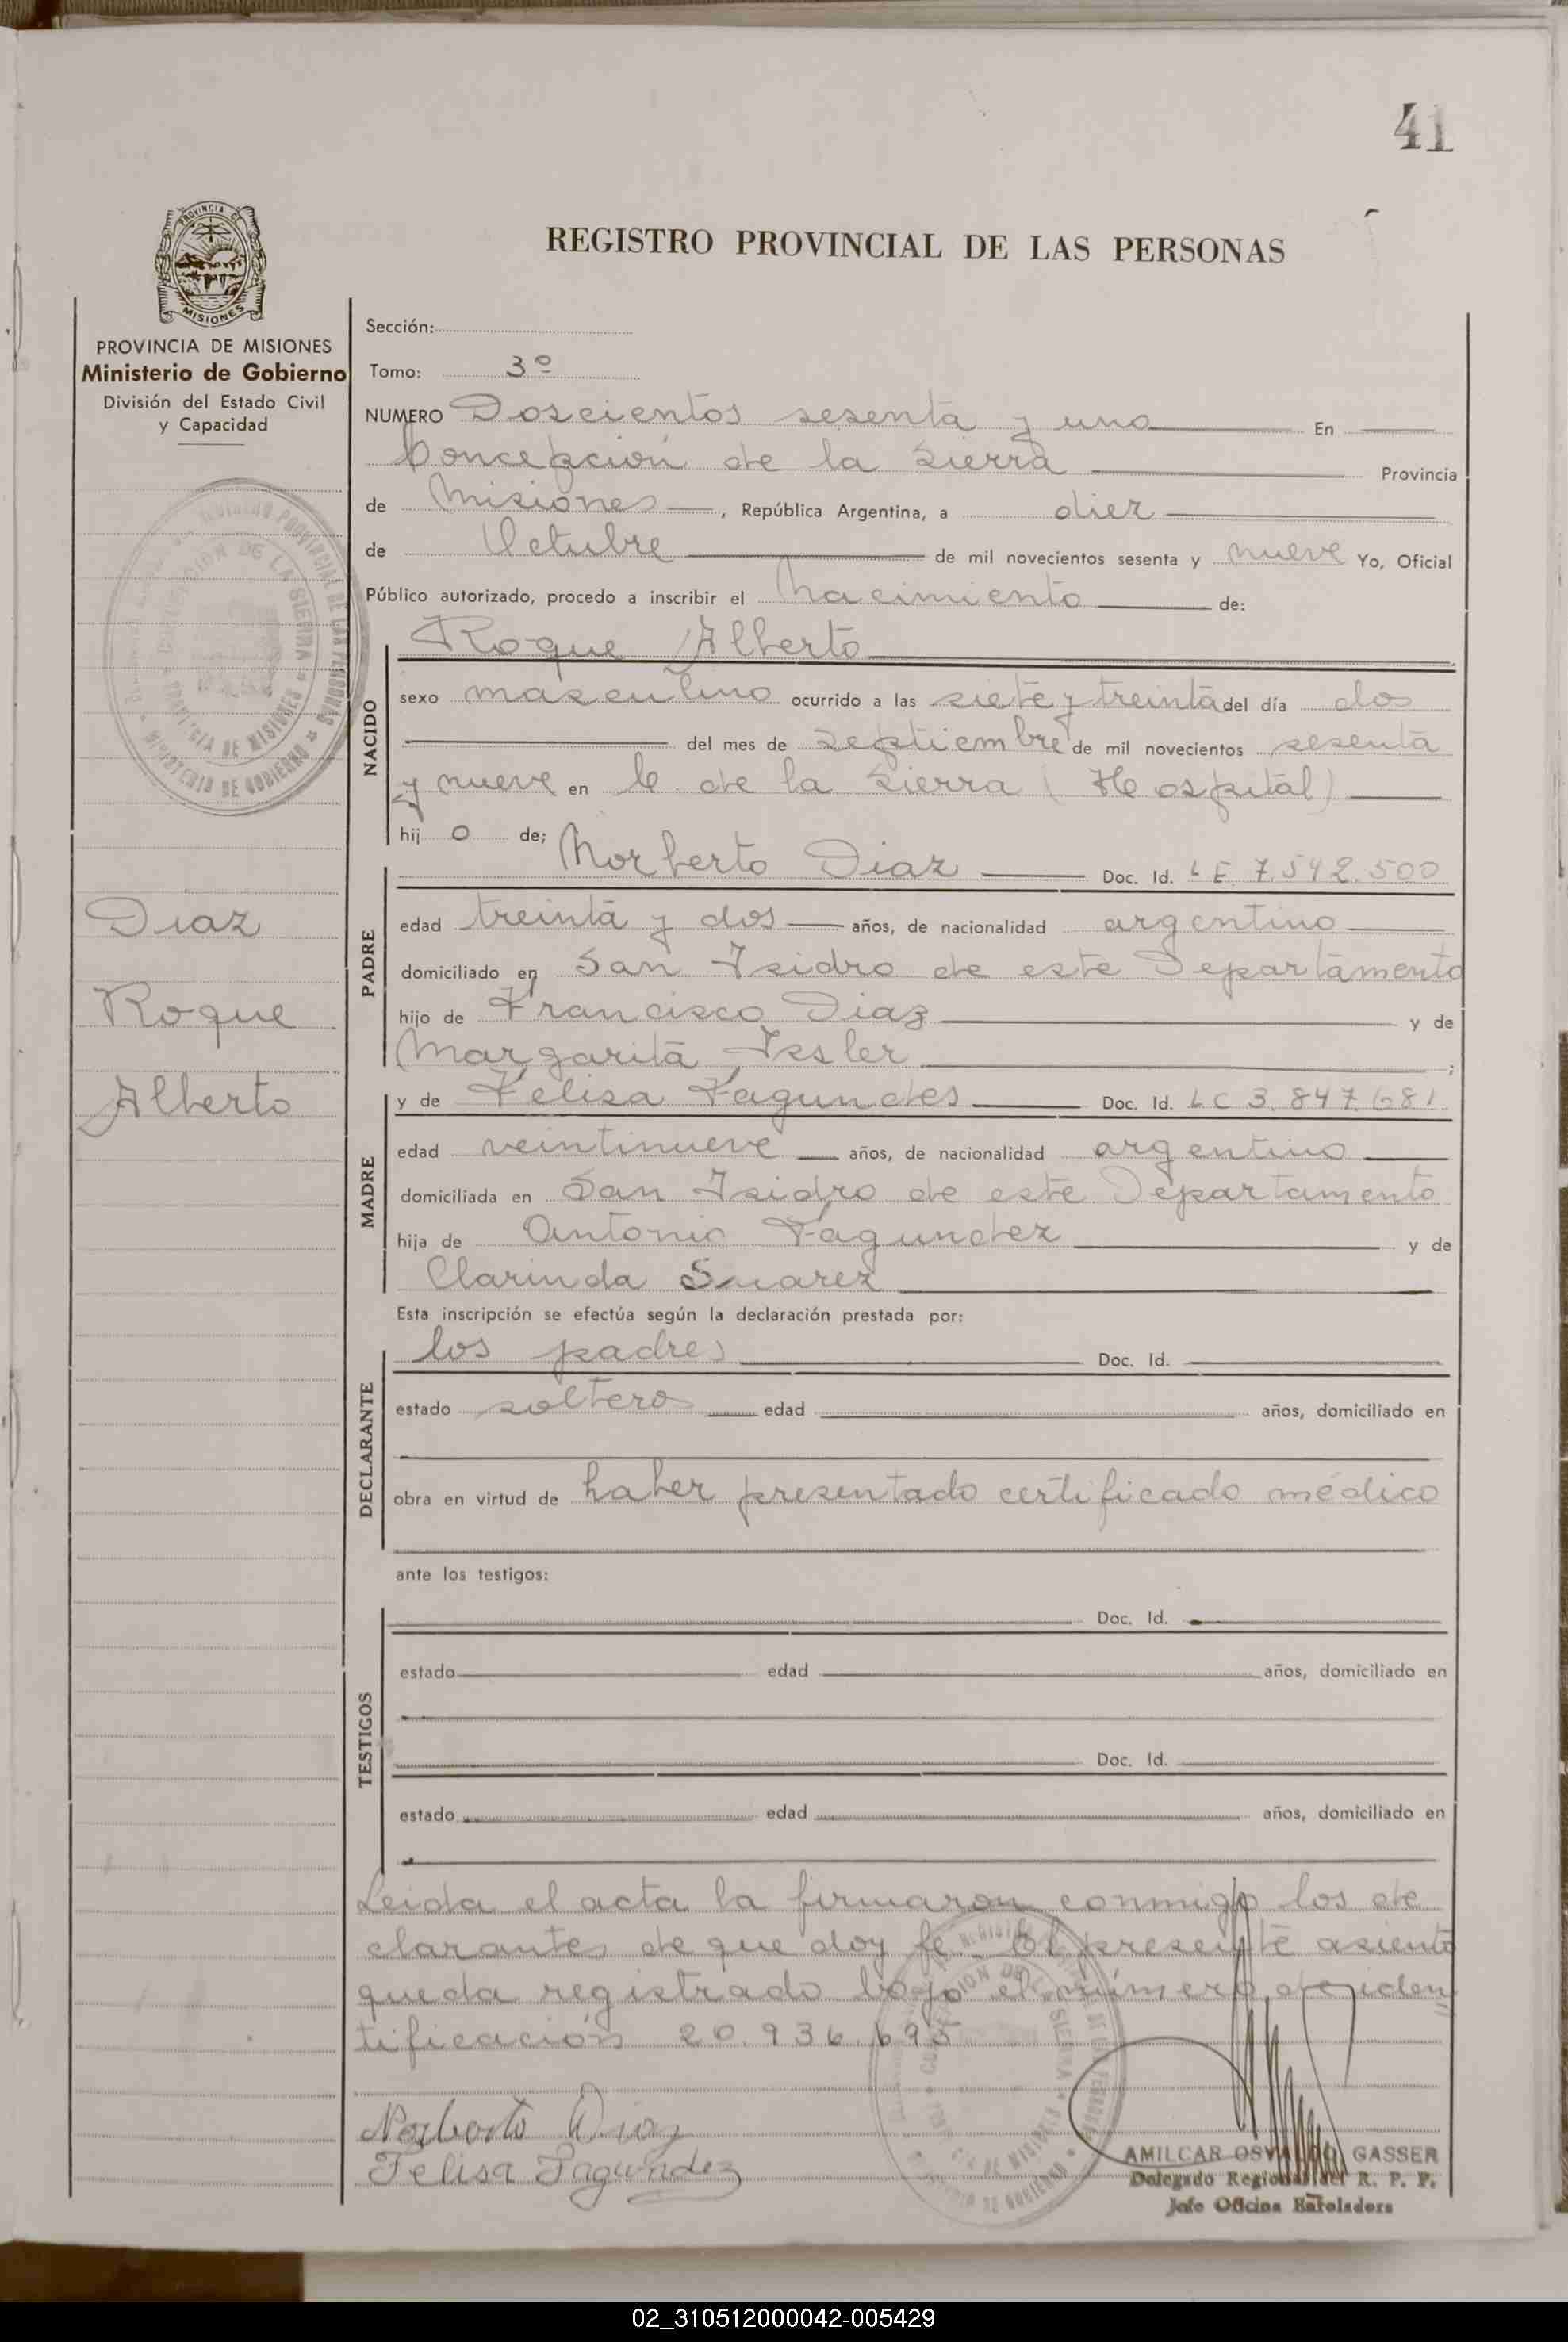 41
PROVINCIA DE
MISIONES
REGISTRO PROVINCIAL DE LAS PERSONAS
PROVINCIA DE MISIONES
Ministerio de Gobierno
División del Estado Civil
y Capacidad
Diaz
Roque
Alberto
Sección:
Tomo: 3º
NUMERO Doscientos sesenta y uno En
Concepción de la Sierra Provincia
de Misiones, República Argentina, a diez
de Octubre de mil novecientos sesenta y nueve Yo, Oficial
Público autorizado, procedo a inscribir el nacimiento de:
NACIDO
Roque Alberto
sexo masculino ocurrido a las siete y treinta del día dos
del mes de septiembre de mil novecientos sesenta
y nueve en C. de la Sierra (Hospital)
hij o de;
PADRE
Norberto Diaz Doc. Id. LE 7.542.500
edad treinta y dos años, de nacionalidad argentino
domiciliado en San Isidro de este Departamento
hijo de Francisco Diaz y de
Margarita Issler ;
MADRE
y de Felisa Fagundes Doc. Id. LC 3.847.681
edad veintinueve años, de nacionalidad argentino
domiciliada en San Isidro de este Departamento
hija de Antonio Fagundez y de
Clarinda Suarez
Esta inscripción se efectúa según la declaración prestada por:
DECLARANTE
los padres Doc. Id.
estado soltero edad años, domiciliado en
obra en virtud de haber presentado certificado médico
ante los testigos:
TESTIGOS
Doc. Id.
estado edad años, domiciliado en
Doc. Id.
estado edad años, domiciliado en
Leida el acta la firmaron conmigo los de
clarantes de que doy fe. El presente asiento
queda registrado bajo el número de iden
tificación 20.936.695
Norberto Diaz
Felisa Fagundez
AMILCAR OSVALDO GASSER
Delegado Regional del R. P. P.
Jefe Oficina Enroladora
02_310512000042-005429